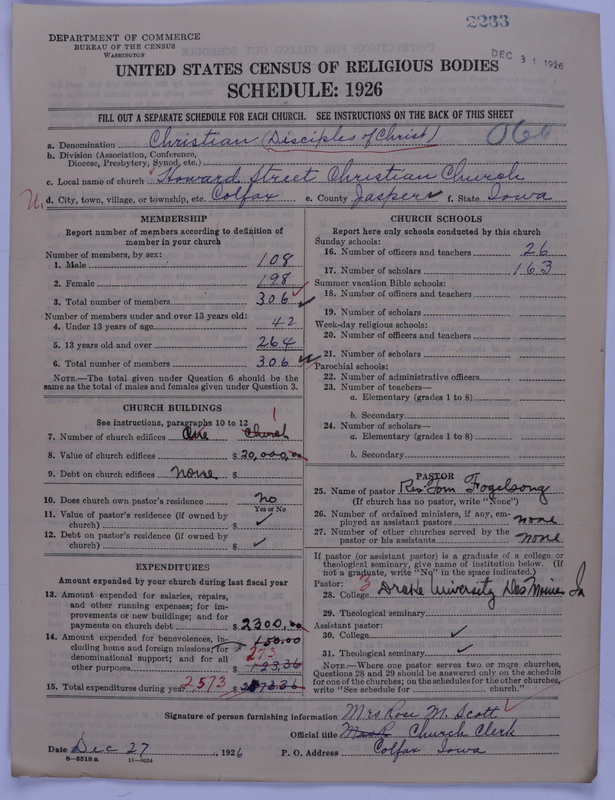 2233
DEPARTMENT OF COMMERCE
BUREAU OF THE CENSUS
WASHINGTON
DEC 31 1926
UNITED STATES CENSUS OF RELIGIOUS BODIES
SCHEDULE: 1926
FILL OUT A SEPARATE SCHEDULE FOR EACH CHURCH. SEE INSTRUCTIONS ON THE BACK OF THIS SHEET
a. Denomination Christian (Disciples of Christ)
b. Division (Association, Conference,
Diocese, Presbytery, Synod, etc.)
c. Local name of church Howard Street Christian Church
d. City, town, village, or township, etc. Colfax e. County Jasper f. State Iowa
MEMBERSHIP
Report number of members according to definition of
member in your church
Number of members, by sex:
1. Male 108
2. Female 198
3. Total number of members 306
Number of members under and over 13 years old:
4. Under 13 years of age 42
5. 13 years old and over 264
6. Total number of members 306
NOTE.—The total given under Question 6 should be the
same as the total of males and females given under Question 3.
CHURCH BUILDINGS
See instructions, paragraphs 10 to 12
7. Number of church edifices One Church 1
8. Value of church edifices $ 20,000.00
9. Debt on church edifices none $
10. Does church own pastor's residence No
Yes or No
11. Value of pastor's residence (if owned by
church) $
12. Debt on pastor's residence (if owned by
church) $
EXPENDITURES
Amount expended by your church during last fiscal year
13. Amount expended for salaries, repairs,
and other running expenses; for im-
provements or new buildings; and for
payments on church debt $ 2300.00
14. Amount expended for benevolences, in-
cluding home and foreign missions; for
denominational support; and for all
other purposes 150.00
273
123.36
15. Total expenditures during year 2573
CHURCH SCHOOLS
Report here only schools conducted by this church
Sunday schools:
16. Number of officers and teachers 26
17. Number of scholars 163
Summer vacation Bible schools:
18. Number of officers and teachers
19. Number of scholars
Week-day religious schools:
20. Number of officers and teachers
21. Number of scholars
Parochial schools:
22. Number of administrative officers
23. Number of teachers—
a. Elementary (grades 1 to 8)
b. Secondary
24. Number of scholars—
a. Elementary (grades 1 to 8)
b. Secondary
PASTOR
25. Name of pastor Rev Tom Fogelsong
(If church has no pastor, write "None")
26. Number of ordained ministers, if any, em-
ployed as assistant pastors none
27. Number of other churches served by the
pastor or his assistants none
If pastor (or assistant pastor) is a graduate of a college or
theological seminary, give name of institution below. (If
not a graduate, write "No" in the space indicated.)
Pastor: 3
28. College Drake University Des Moines Ia
29. Theological seminary
Assistant pastor:
30. College
31. Theological seminary
NOTE.—Where one pastor serves two or more churches,
Questions 28 and 29 should be answered only on the schedule
for one of the churches; on the schedules for the other churches,
write "See schedule for church."
Signature of person furnishing information Mrs Rose M. Scott
Official title Church Clerk
Date Dec 27, 1926 P. O. Address Colfax Iowa
8—5518a 11—9054